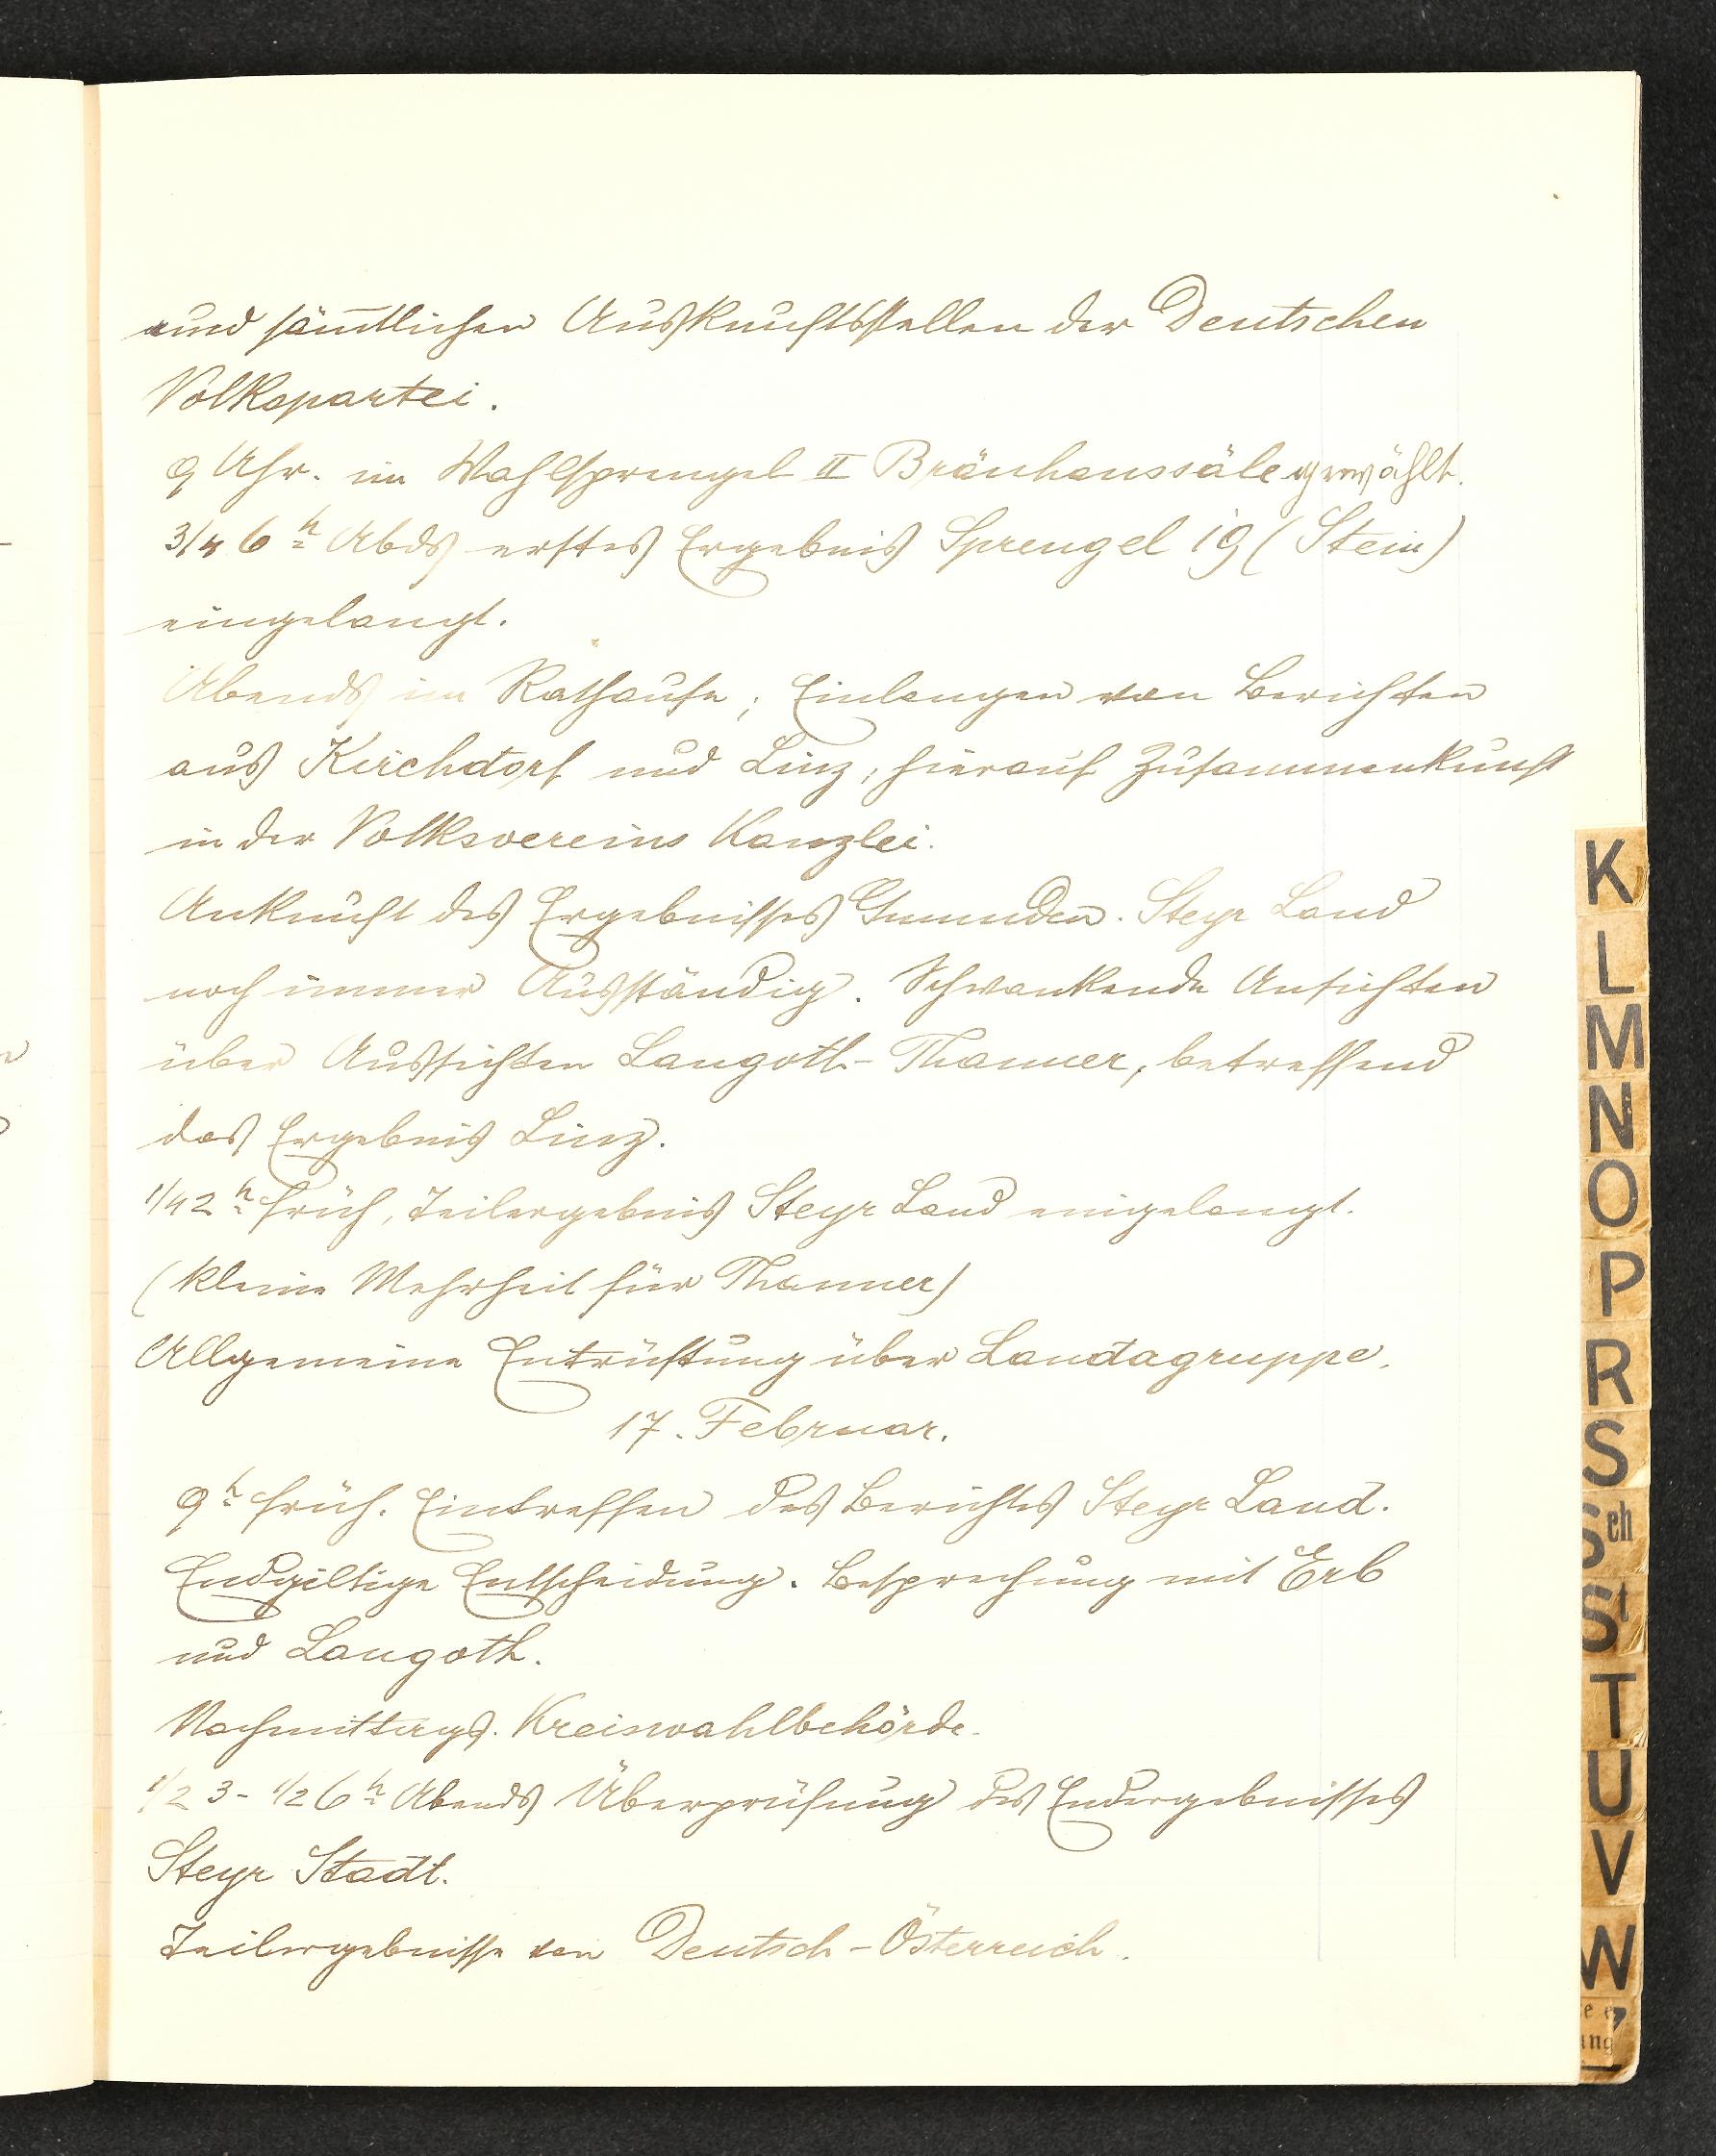 und sämtlichen Auskunftsstellen der Deutschen
Volkspartei.
9 Uhr. im Wahlsprengel II Bräuhaussäle gewählt.
3/4 6 h Abds erstes Ergebnis Sprengel 19 (Stein)
eingelangt.
Abends im Rathause; Einlangen von Berichten
aus Kirchdorf und Linz, hierauf Zusammenkunft
in der Volksvereins Kanzlei.
Ankunft des Ergebnisses Gmunden. Steyr Land
noch immer Ausständig. Schwankende Ansichten
über Aussichten Langoth-Thanner, betreffend
das Ergebnis Linz.
1/4 2 h früh, Teilergebnis Steyr Land eingelangt.
(kleine Mehrheit für Thanner)
Allgemeine Entrüstung über Landagruppe.
17. Februar.
9 h früh. Eintreffen des Berichtes Steyr Land.
Endgiltige Entscheidung. Besprechung mit Erb
und Langoth.
Nachmittags. Kreiswahlbehörde.
1/2 3 - 1/2 6 h Abends Überprüfung des Endergebnisses
Steyr Stadt.
Teilergebnisse von Deutsch-Österreich.
K
L
M
N
O
P
R
S
Sch
St
T
U
V
W